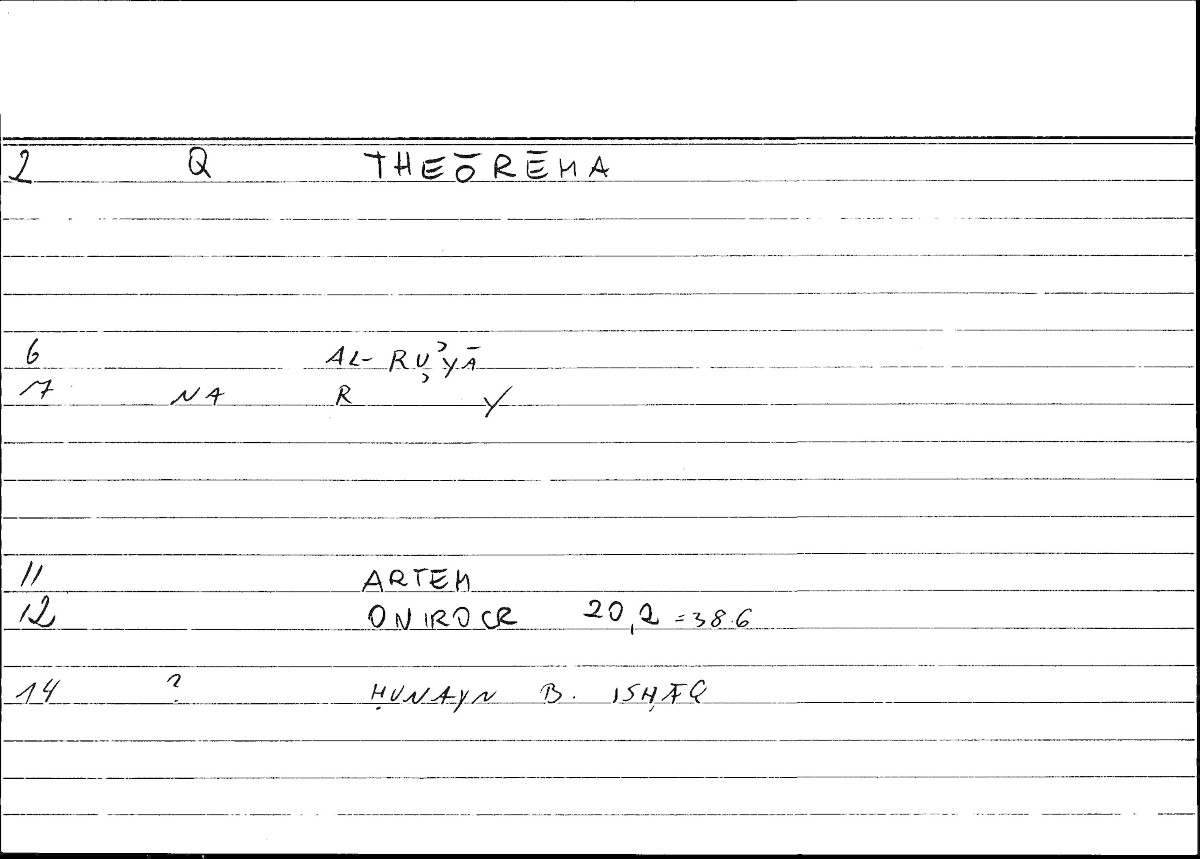 2 Q THEŌRĒMA
6 AL-RUʾYĀ
7 NA R ʾ Y
11 ARTEM
12 ONIROCR 20,2 =38.6
14 ? ḤUNAYN B. ISḤĀQ